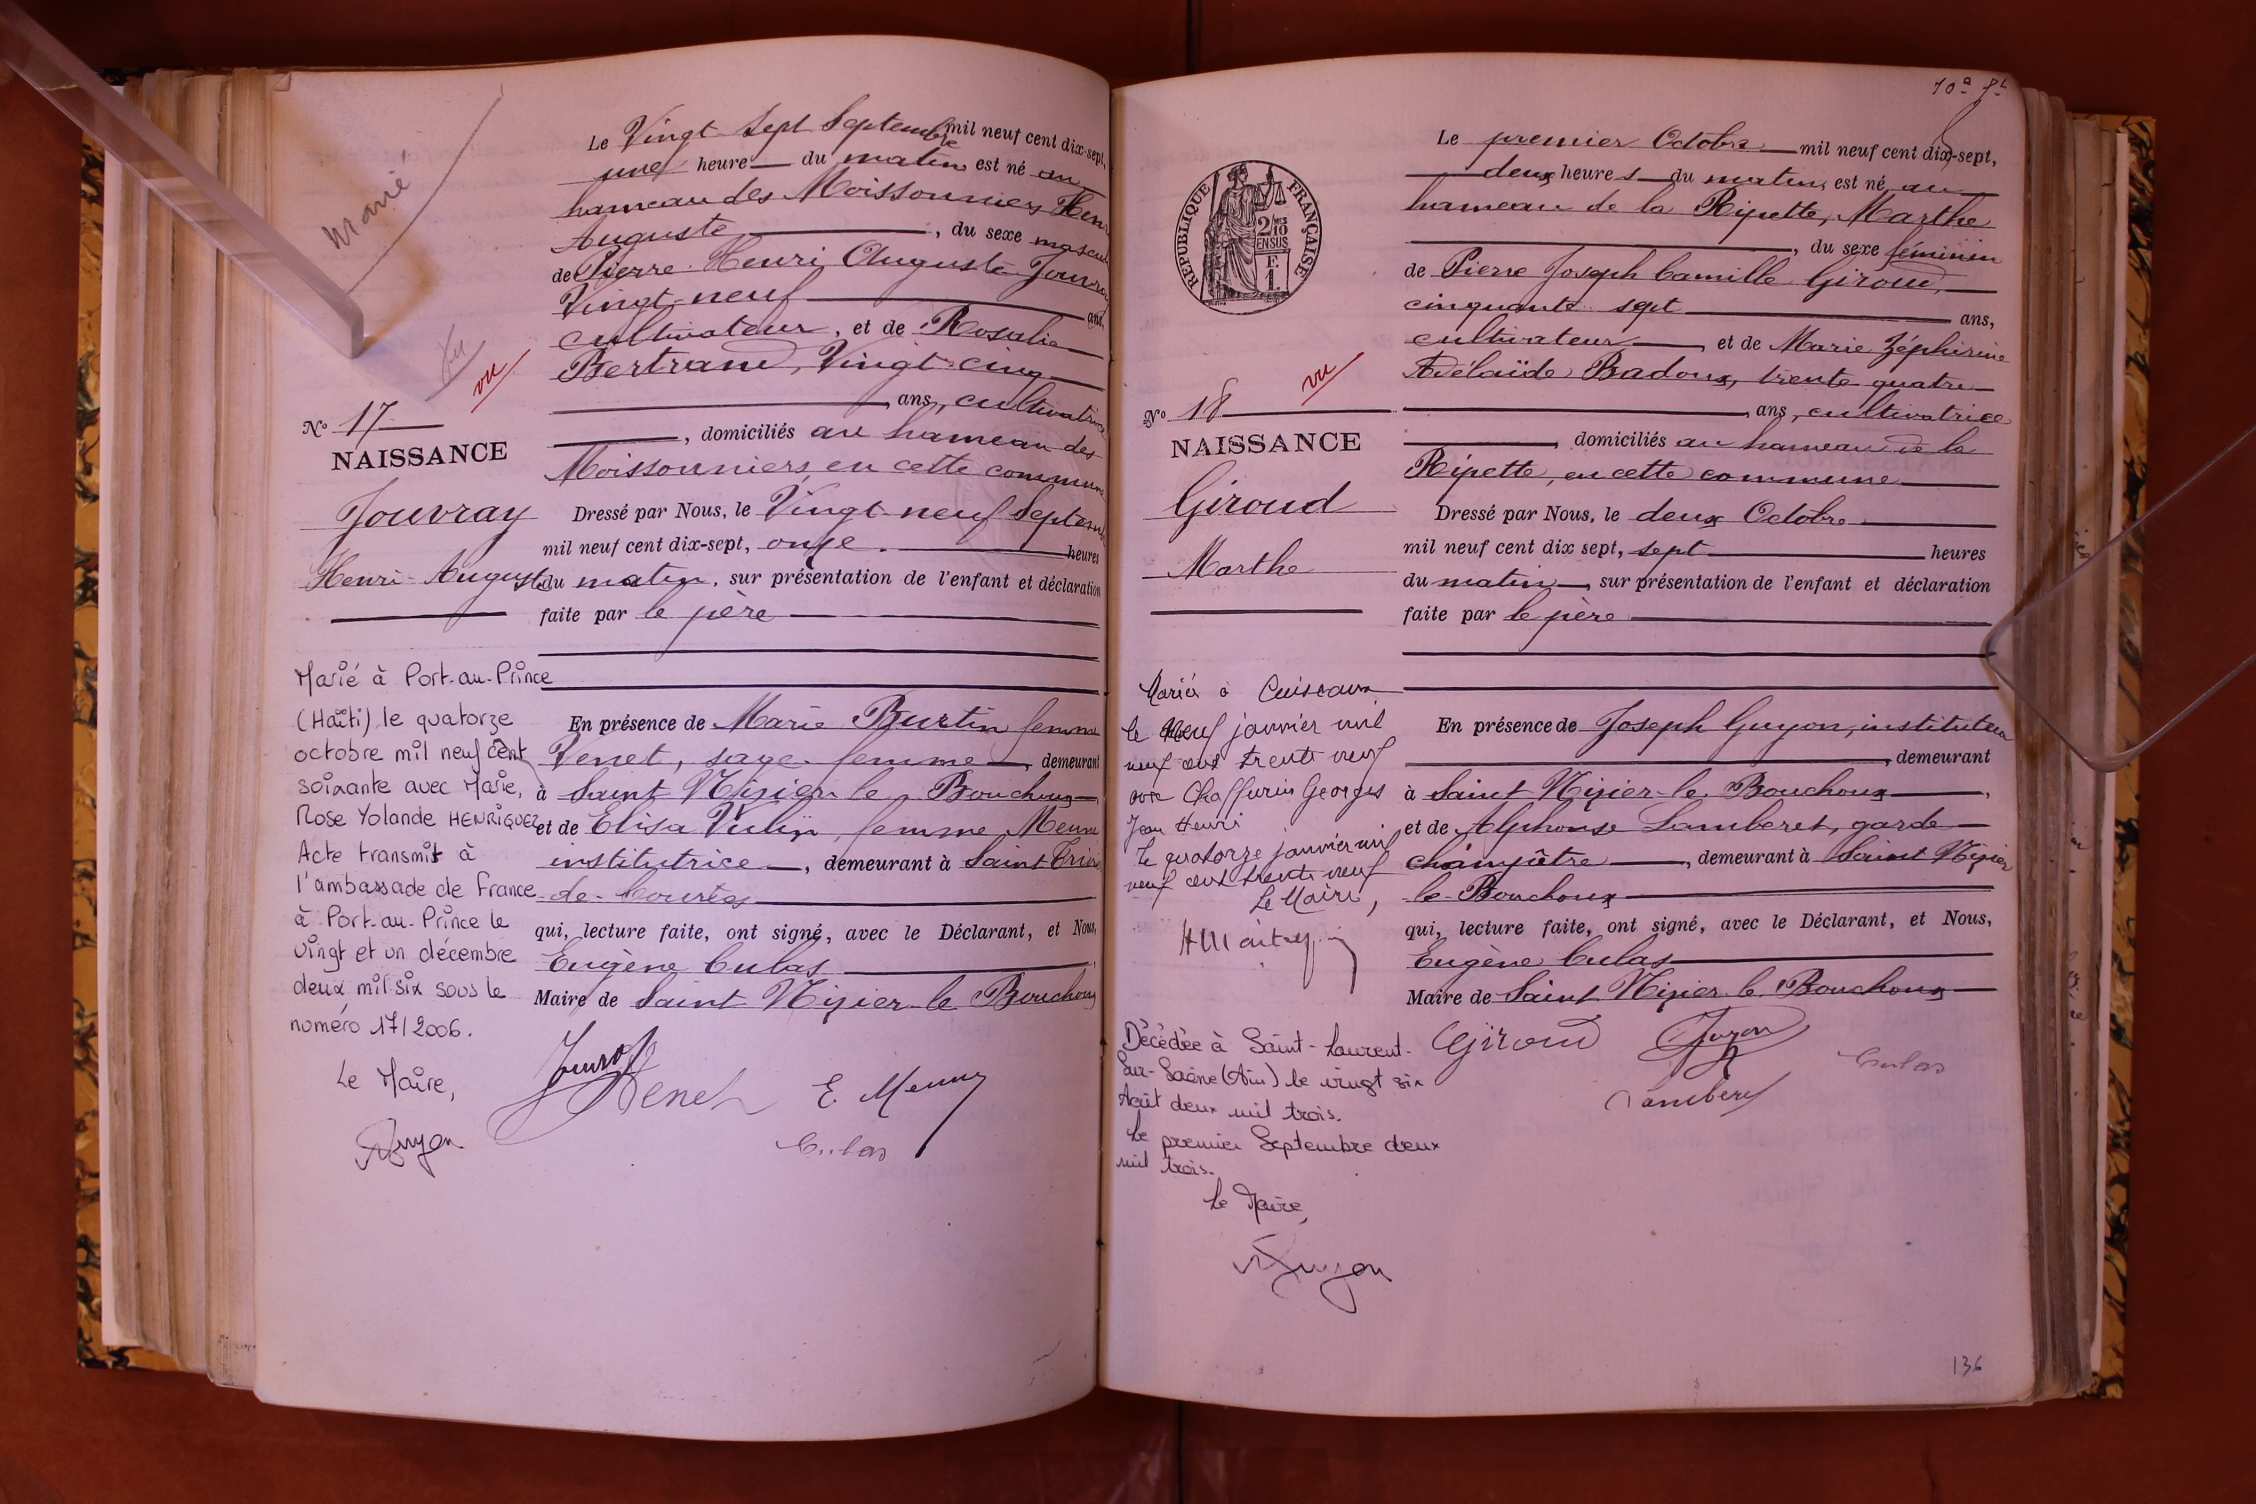 Marié
Vu
vu
N° 17
NAISSANCE
Jouvray
Henri-Auguste
Marié à Port-au-Prince
(Haïti) le quatorze
octobre mil neuf cent
soixante avec Marie,
Rose Yolande HENRIQUEZ
Acte transmis à
l'ambassade de France
à Port-au-Prince le
vingt et un décembre
deux mil six sous le
numéro 17/2006.
Le Maire,
Guyon
Le Vingt-sept Septembre mil neuf cent dix-sept,
une heure du matin est né au
hameau des Moissonniers Henri
Auguste, du sexe masculin
de Pierre Henri Auguste Jouvray
Vingt-neuf ans,
cultivateur, et de Rosalie
Bertrand, Vingt-cinq
ans, cultivatrice
, domiciliés au hameau des
Moissonniers, en cette commune
Dressé par Nous, le Vingt-neuf Septembre
mil neuf cent dix-sept, onze heures
du matin, sur présentation de l'enfant et déclaration
faite par le père
En présence de Marie Burtin femme
Venet, sage-femme, demeurant
à Saint Nizier-le-Bouchoux
et de Elisa Vulin, femme Meuny
institutrice, demeurant à Saint Trivier
de-Courtes
qui, lecture faite, ont signé, avec le Déclarant, et Nous,
Eugène Culas
Maire de Saint Nizier-le-Bouchoux
Jouvray
Venet E. Meuny
Culas
REPUBLIQUE FRANÇAISE
2/10 EN SUS
F. 1.
vu
N° 18
NAISSANCE
Giroud
Marthe
Mariée à Cuiseaux
le neuf janvier mil
neuf cent trente neuf
avec Chaffurin Georges
Jean Henri
Le quatorze janvier mil
neuf cent trente neuf
Le Maire,
Décédée à Saint-Laurent-
Sur-Saône (Ain) le vingt six
Août deux mil trois.
Le premier Septembre deux
mil trois.
Le Maire,
Guyon
Le premier Octobre mil neuf cent dix-sept,
deux heures du matin, est né au
hameau de la Ripette, Marthe
, du sexe féminin
de Pierre Joseph Camille Giroud,
cinquante-sept ans,
cultivateur, et de Marie Zéphirine
Adélaïde Badoux, trente-quatre
ans, cultivatrice
, domiciliés au hameau de la
Ripette, en cette commune
Dressé par Nous, le deux Octobre
mil neuf cent dix sept, sept heures
du matin, sur présentation de l'enfant et déclaration
faite par le père
En présence de Joseph Guyon, instituteur
, demeurant
à Saint Nizier-le-Bouchoux,
et de Alphonse Lamberet, garde
champêtre, demeurant à Saint Nizier
le-Bouchoux
qui, lecture faite, ont signé, avec le Déclarant, et Nous,
Eugène Culas
Maire de Saint Nizier-le-Bouchoux
Giroud Guyon
Culas
Lamberet
136